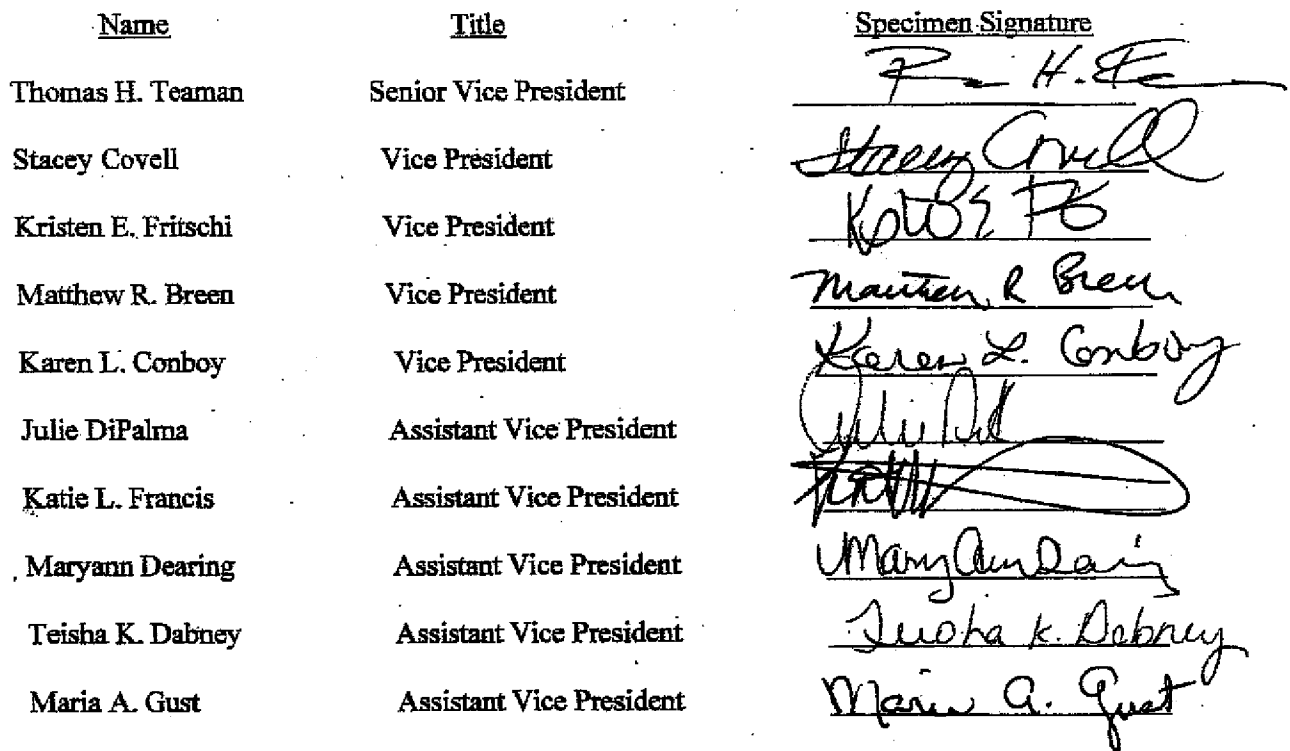 Name Title Specimen Signature
Thomas H. Teaman Senior Vice President H.
Stacey Covell Vice President Stacey Covell
Kristen E. Fritschi Vice President
Matthew R. Breen Vice President Matthew R Breen
Karen L. Conboy Vice President Karen L. Conboy
Julie DiPalma Assistant Vice President Julie
Katie L. Francis Assistant Vice President
Maryann Dearing Assistant Vice President
Teisha K. Dabney Assistant Vice President Teisha K. Dabney
Maria A. Gust Assistant Vice President Maria A. Gust